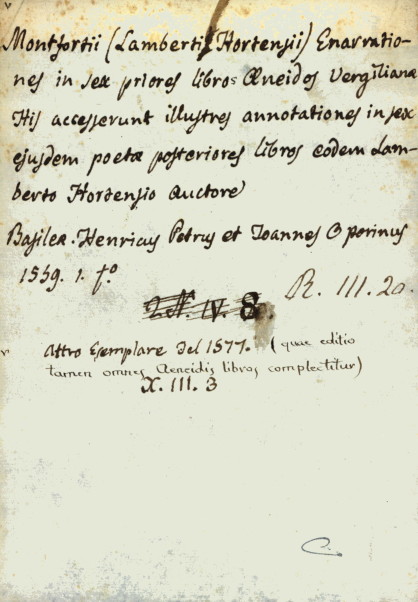 Montfortii (Lamberti Hortensii) Enarratio-
nes in sex priores libros Æneidos Vergilianæ
His accesserunt illustres annotationes in sex
ejusdem poetæ posteriores libros eodem Lam-
berto Hortensio Auctore
Basileæ. Henricus Petrus et Joannes Oporinus
1559. 1. fº
R. III. 20.
IV. 8.
Altro Esemplare del 1577. (quae editio
tamen omnes Aeneidis libros complectitur)
X. III. 3
C.